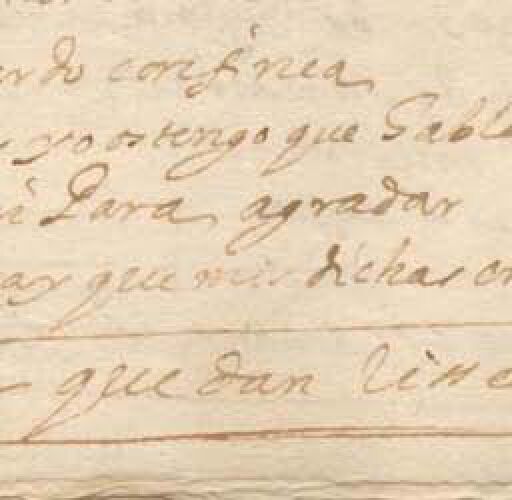 erdo confinea
yo os tengo que Gabl
Para agradar
ar que mis dichas
quedan